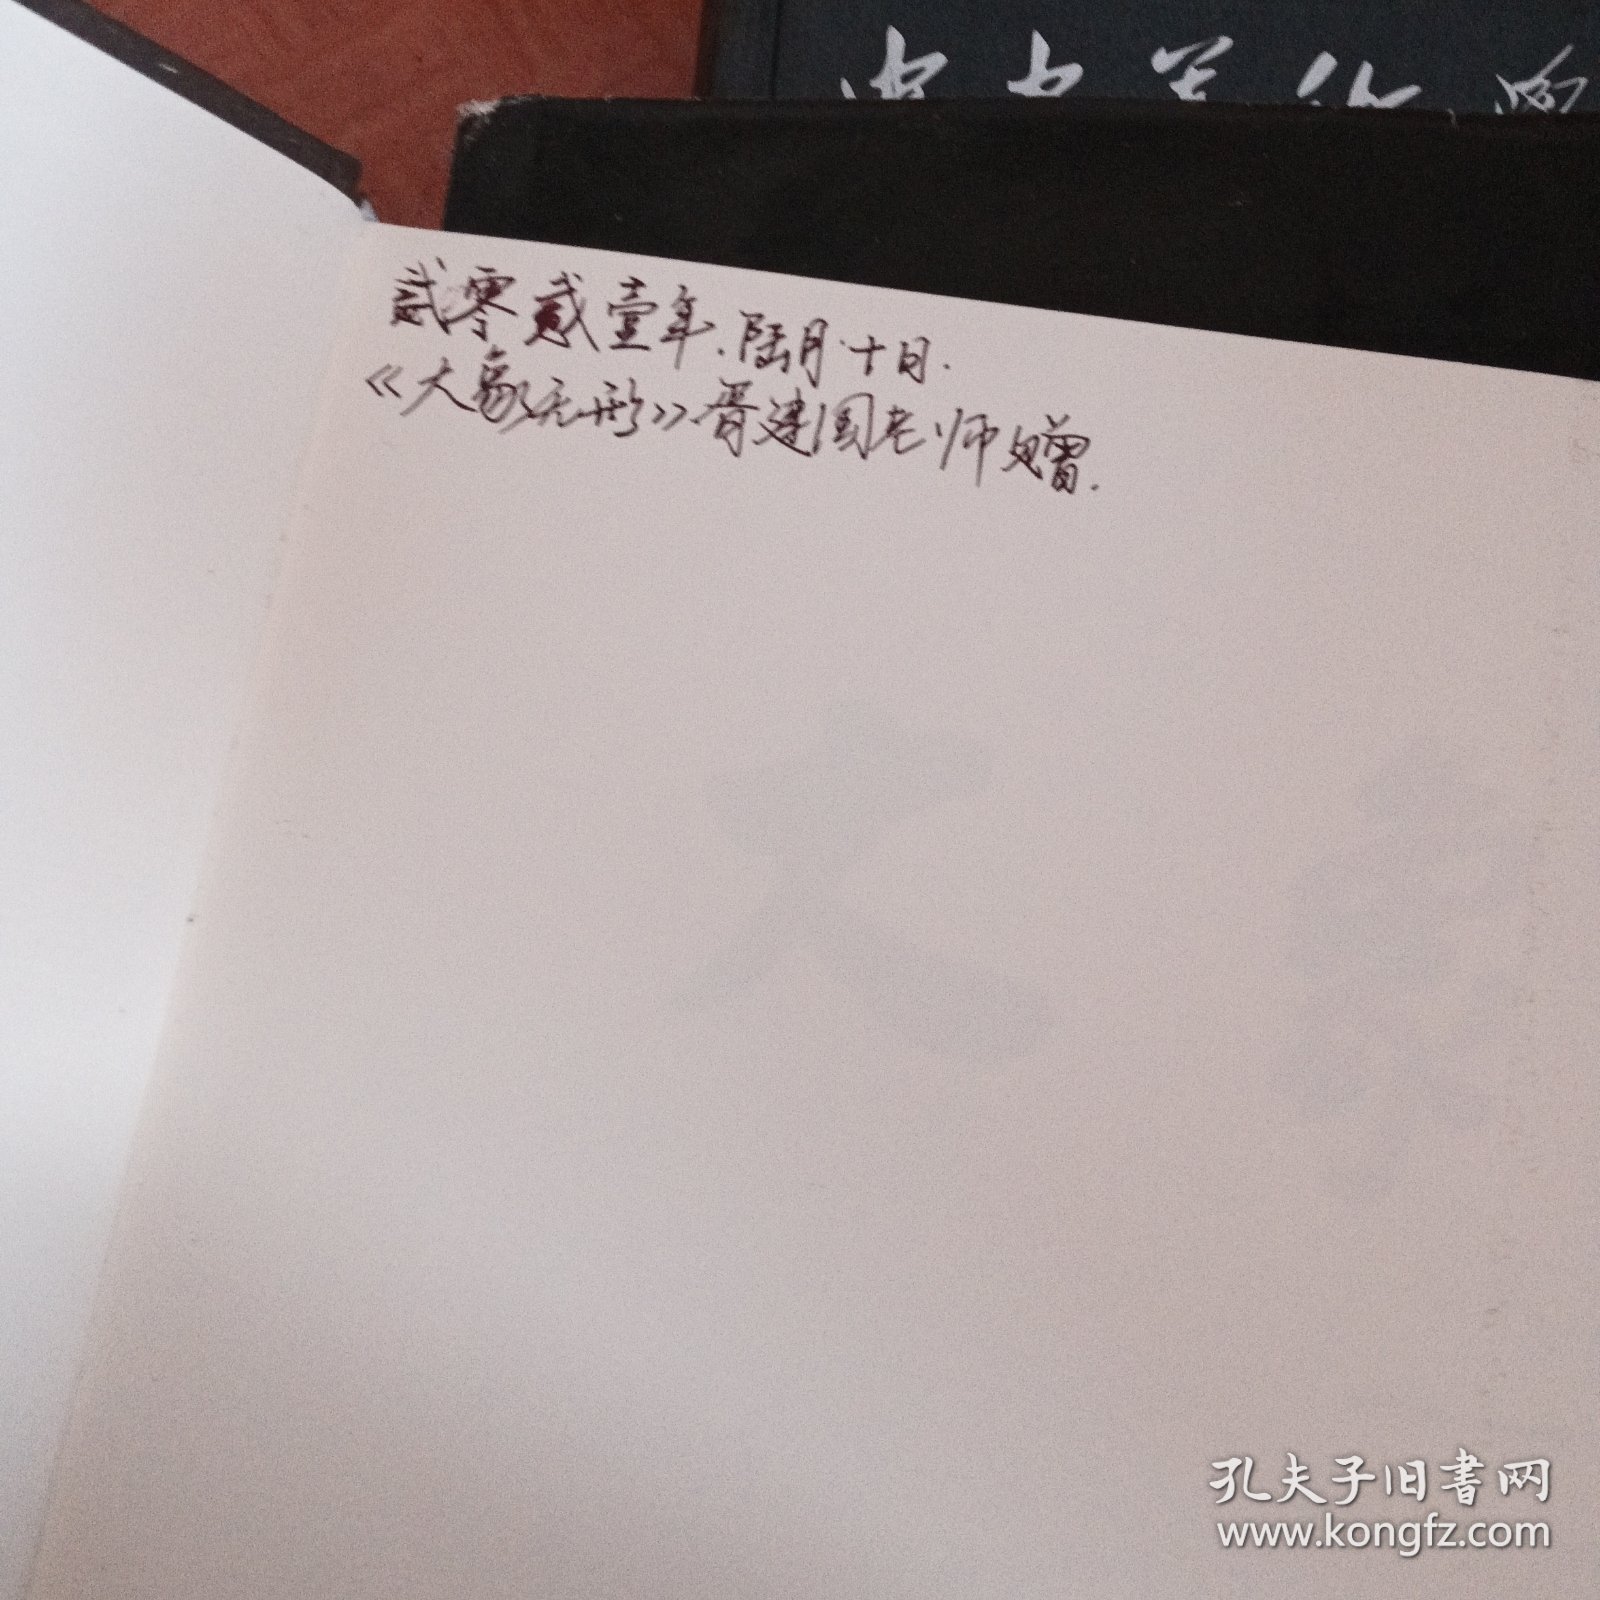 中央美術
贰零贰壹年.陆月.十日.
《大象无形》晋建国老师赠.
孔夫子旧書网
www.kongfz.com